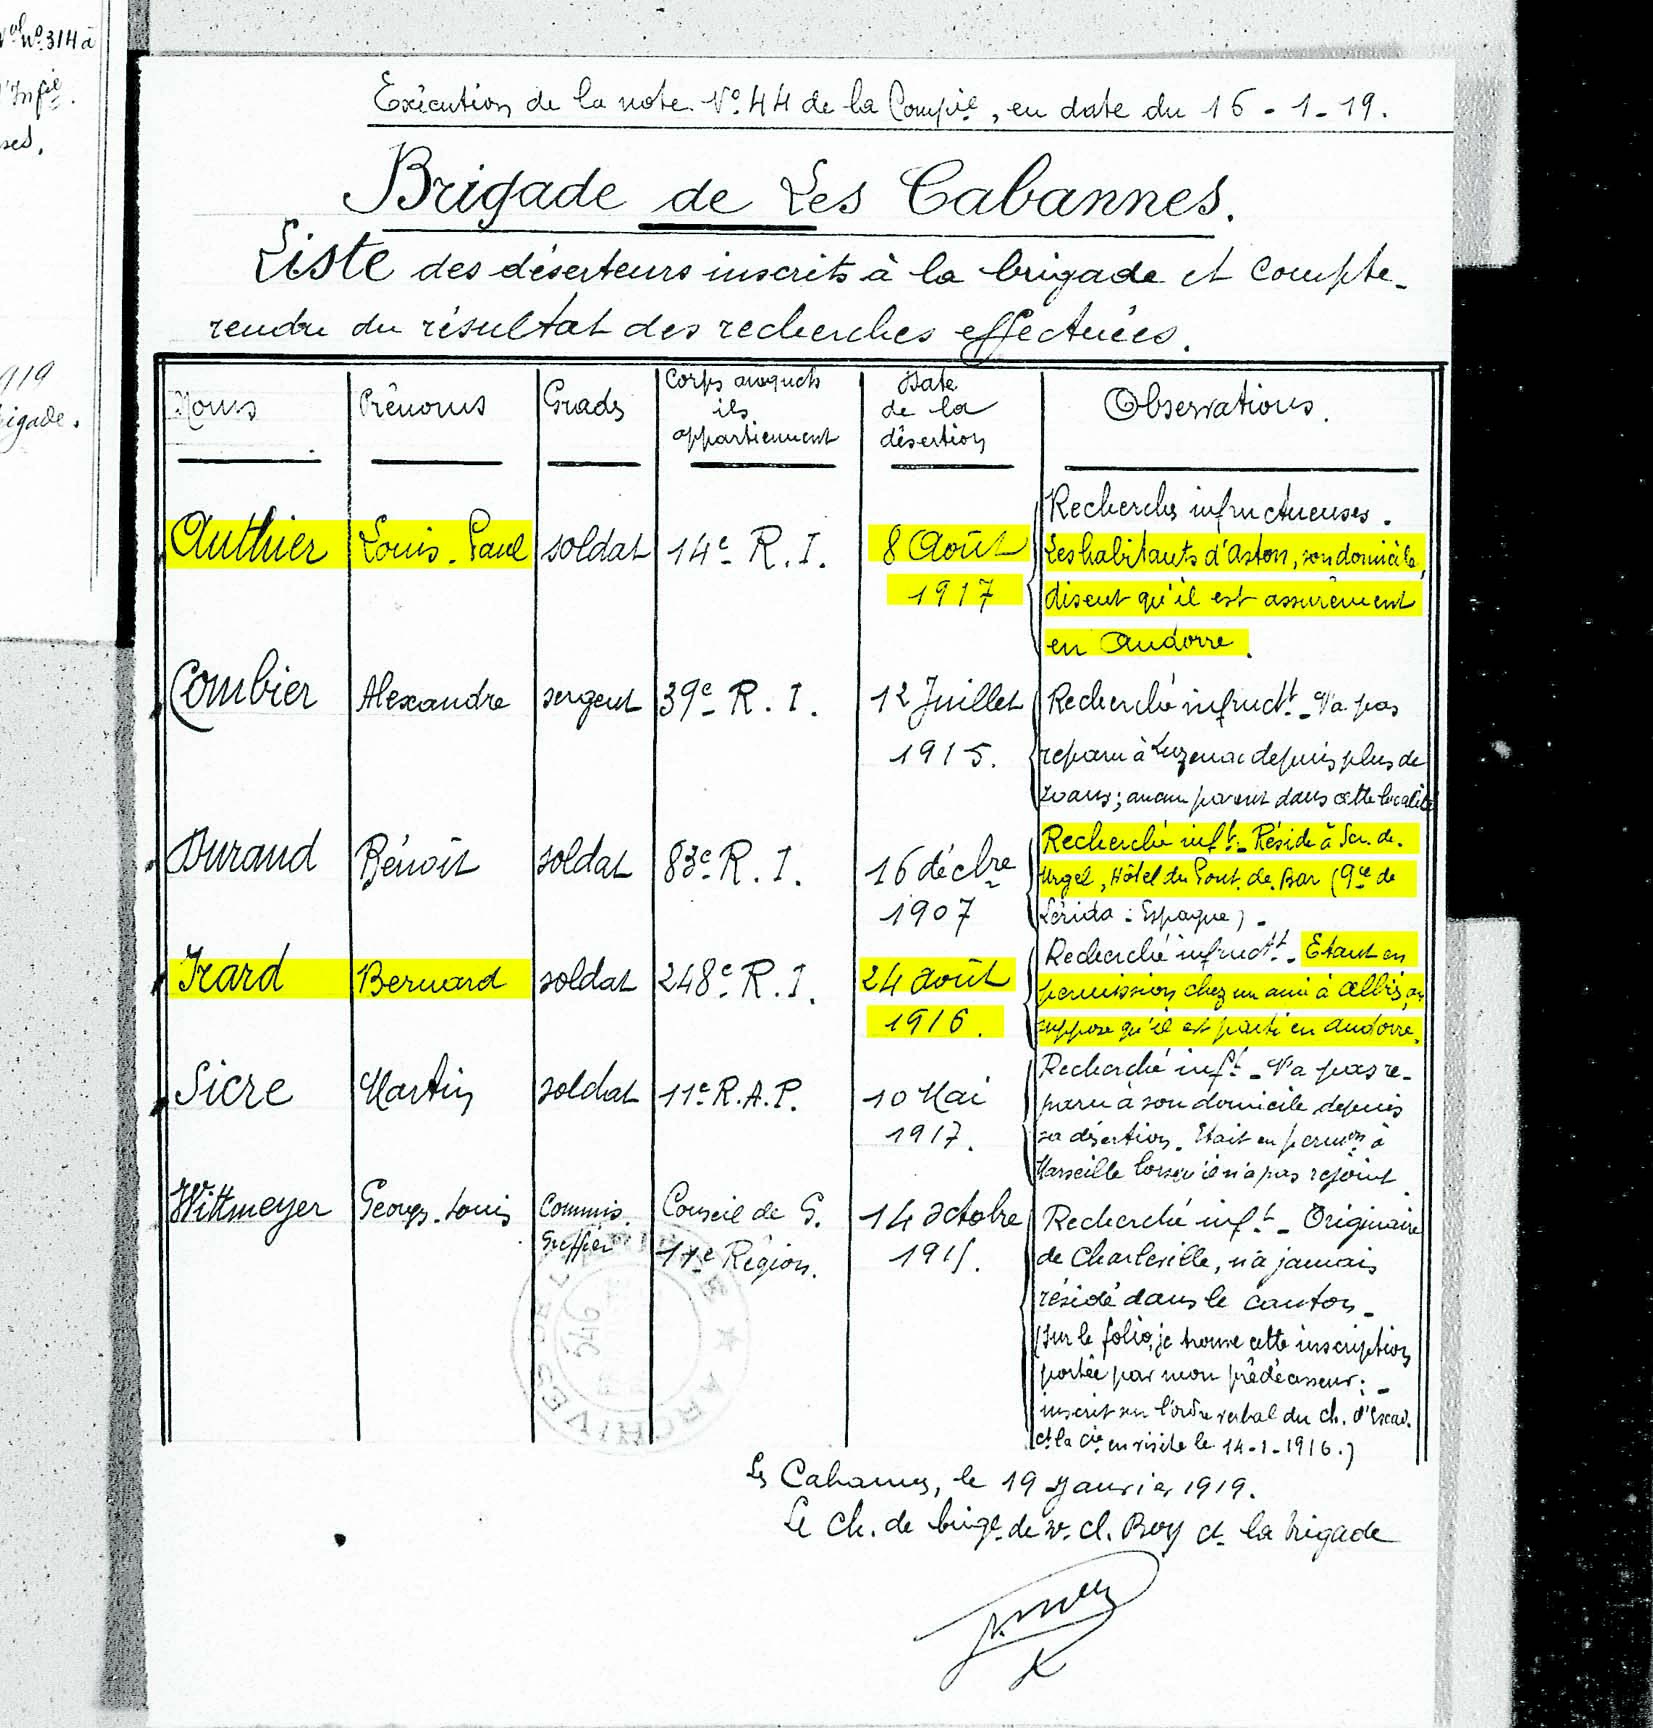 nº 314 à
d'Infie.
ses.
919
rigade.
Exécution de la note Nº 44 de la Compie, en date du 16-1-19.
Brigade de Les Cabannes.
Liste des déserteurs inscrits à la brigade et compte-
rendu du résultat des recherches effectuées.
Noms
Prénoms
Grades
Corps auxquels
ils
appartiennent
Date
de la
désertion
Observations.
Authier
Louis-Paul
soldat
14e R.I.
8 Août
1917
Recherches infructueuses.
Les habitants d'Aston, son domicile,
disent qu'il est assurément
en Andorre.
Combier
Alexandre
sergent
39e R.I.
12 Juillet
1915.
Recherché infruct.t - N'a pas
reparu à Luzenac depuis plus de
2 ans; aucun parent dans cette localité
Durand
Bénoît
soldat
83e R.I.
16 décbre
1907
Recherché inf.t - Réside à Seu-de-
Urgel, Hôtel du Pont-de-Bar (9ce de
Lérida : Espagne) -
Icard
Bernard
soldat
248e R.I.
24 août
1916.
Recherché infruct.t - Etant en
permission chez un ami à Albiès, on
suppose qu'il est parti en Andorre.
Sicre
Martin
soldat
11e R.A.P.
10 Mai
1917.
Recherché inf.t - N'a pas re-
paru à son domicile depuis
sa désertion. Etait en permon à
Marseille lorsqu'il n'a pas rejoint.
Wittmeyer
Georges-Louis
Commis.
Greffier
Conseil de G.
11e Région.
14 octobre
1915.
Recherché inf.t - Originaire
de Charleville, n'a jamais
résidé dans le canton -
(Sur le folio, je trouve cette inscription
portée par mon prédécesseur: -
inscrit sur l'ordre verbal du ch. d'Escad.
ct la cie en visite le 14-1-1916.)
ARCHIVES
Les Cabannes, le 19 Janvier 1919.
Le ch. de brige de 2e cl. Rey ct la brigade